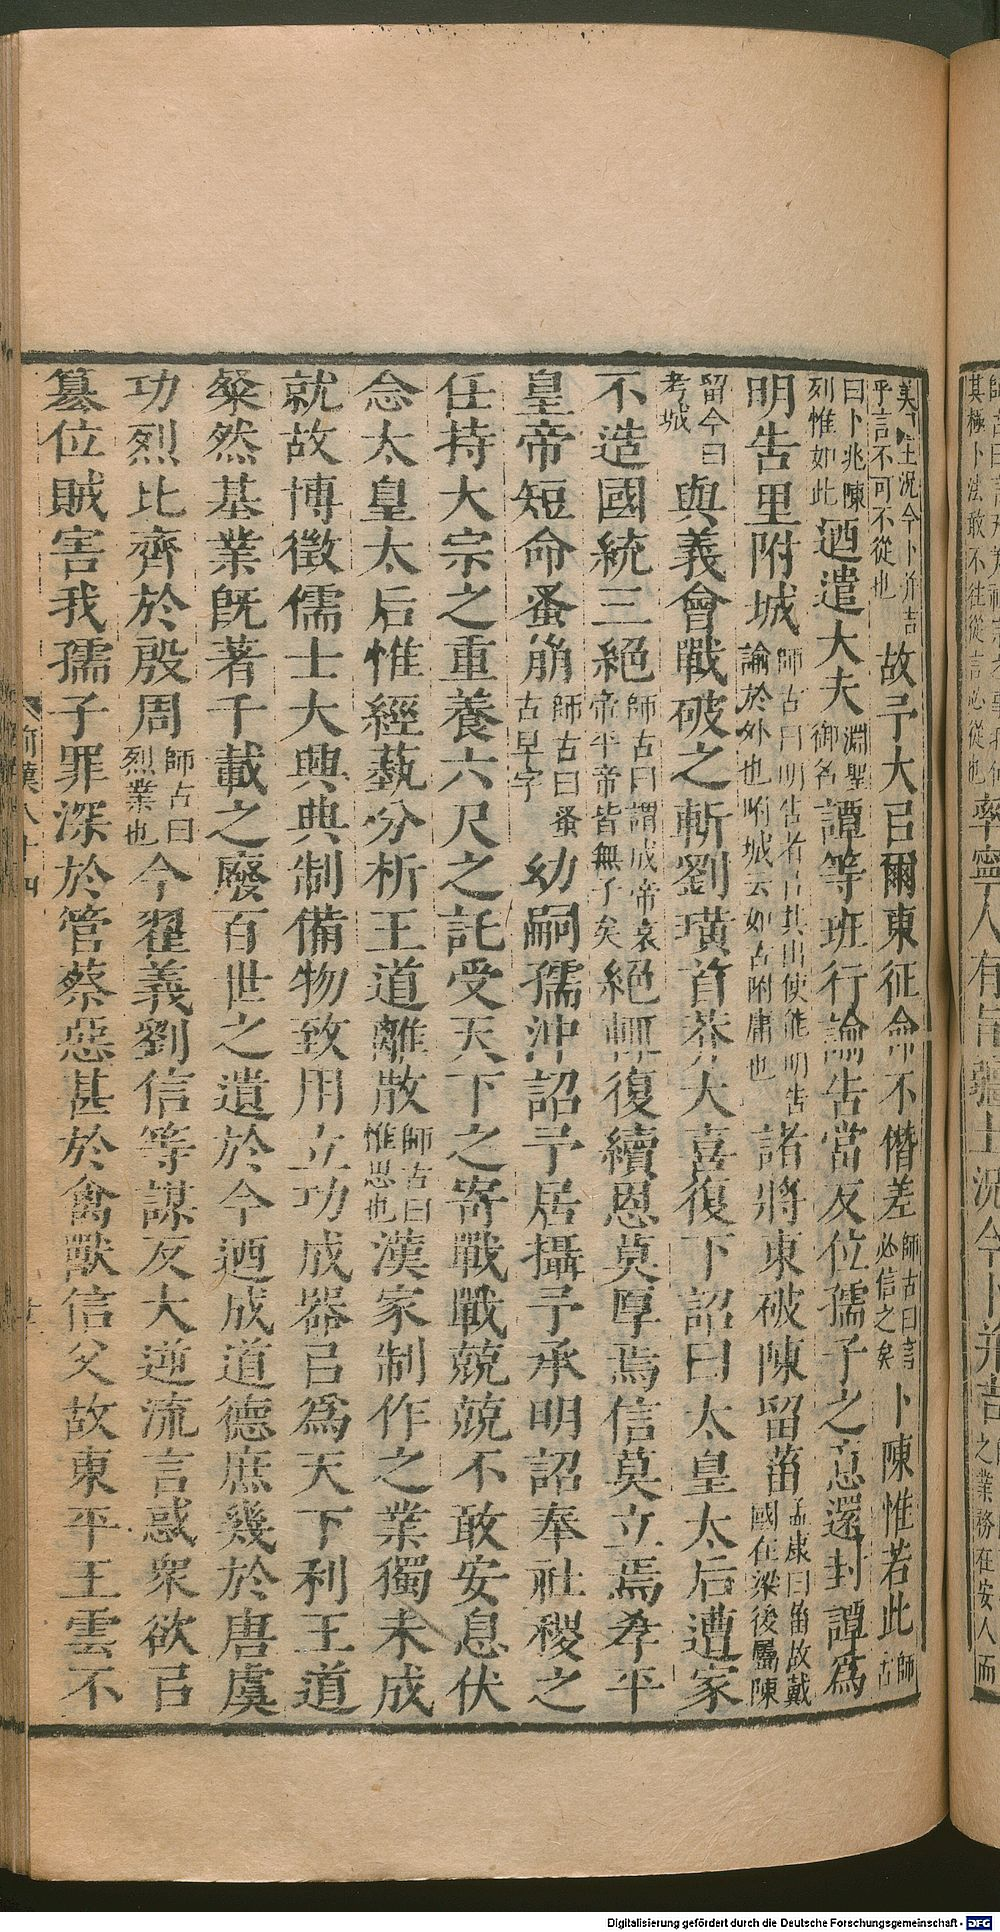 其極卜法敢不往從言必從也率寧人有旨疆土況今卜并吉
之業務在安人而
美疆土況今卜并吉
乎言不可不從也故予大㠯爾東征命不僭差師古曰言
必信之矣卜陳惟若此師
古
曰卜兆陳
列惟如此迺遣大夫淵聖
御名譚等班行諭告當反位孺子之意還封譚爲
明告里附城師古曰明告者㠯其出使能明告
諭於外也附城云如古附庸也諸將東破陳留菑孟康曰菑故戴
國在梁後屬陳
留今曰
考城與義會戰破之斬劉璜首莽大喜復下詔曰太皇太后遭家
不造國統三絕師古曰謂成帝哀
帝平帝皆無子矣絕輒復續恩莫厚焉信莫立焉孝平
皇帝短命蚤崩師古曰蚤
古早字幼嗣孺沖詔予居攝予承明詔奉社稷之
任持大宗之重養六尺之託受天下之寄戰戰兢兢不敢安息伏
念太皇太后惟經藝分析王道離散師古曰
惟思也漢家制作之業獨未成
就故博徵儒士大興典制備物致用立功成器㠯爲天下利王道
粲然基業既著千載之廢百世之遺於今迺成道德庶幾於唐虞
功烈比齊於殷周師古曰
烈業也今翟義劉信等謀反大逆流言惑衆欲㠯
簒位賊害我孺子罪深於管蔡惡甚於禽獸信父故東平王雲不
前漢八十四
Digitalisierung gefördert durch die Deutsche Forschungsgemeinschaft - DFG